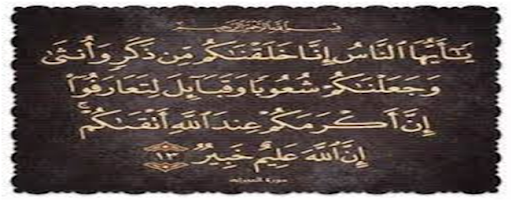 بسم الله الرحمن الرحيم
يَٰٓأَيُّهَا ٱلنَّاسُ إِنَّا خَلَقْنَٰكُم مِّن ذَكَرٍ وَأُنثَىٰ
وَجَعَلْنَٰكُمْ شُعُوبًا وَقَبَآئِلَ لِتَعَارَفُوٓا۟
إِنَّ أَكْرَمَكُمْ عِندَ ٱللَّهِ أَتْقَىٰكُمْ ۚ
إِنَّ ٱللَّهَ عَلِيمٌ خَبِيرٌ ١٣
سورة الحجرات